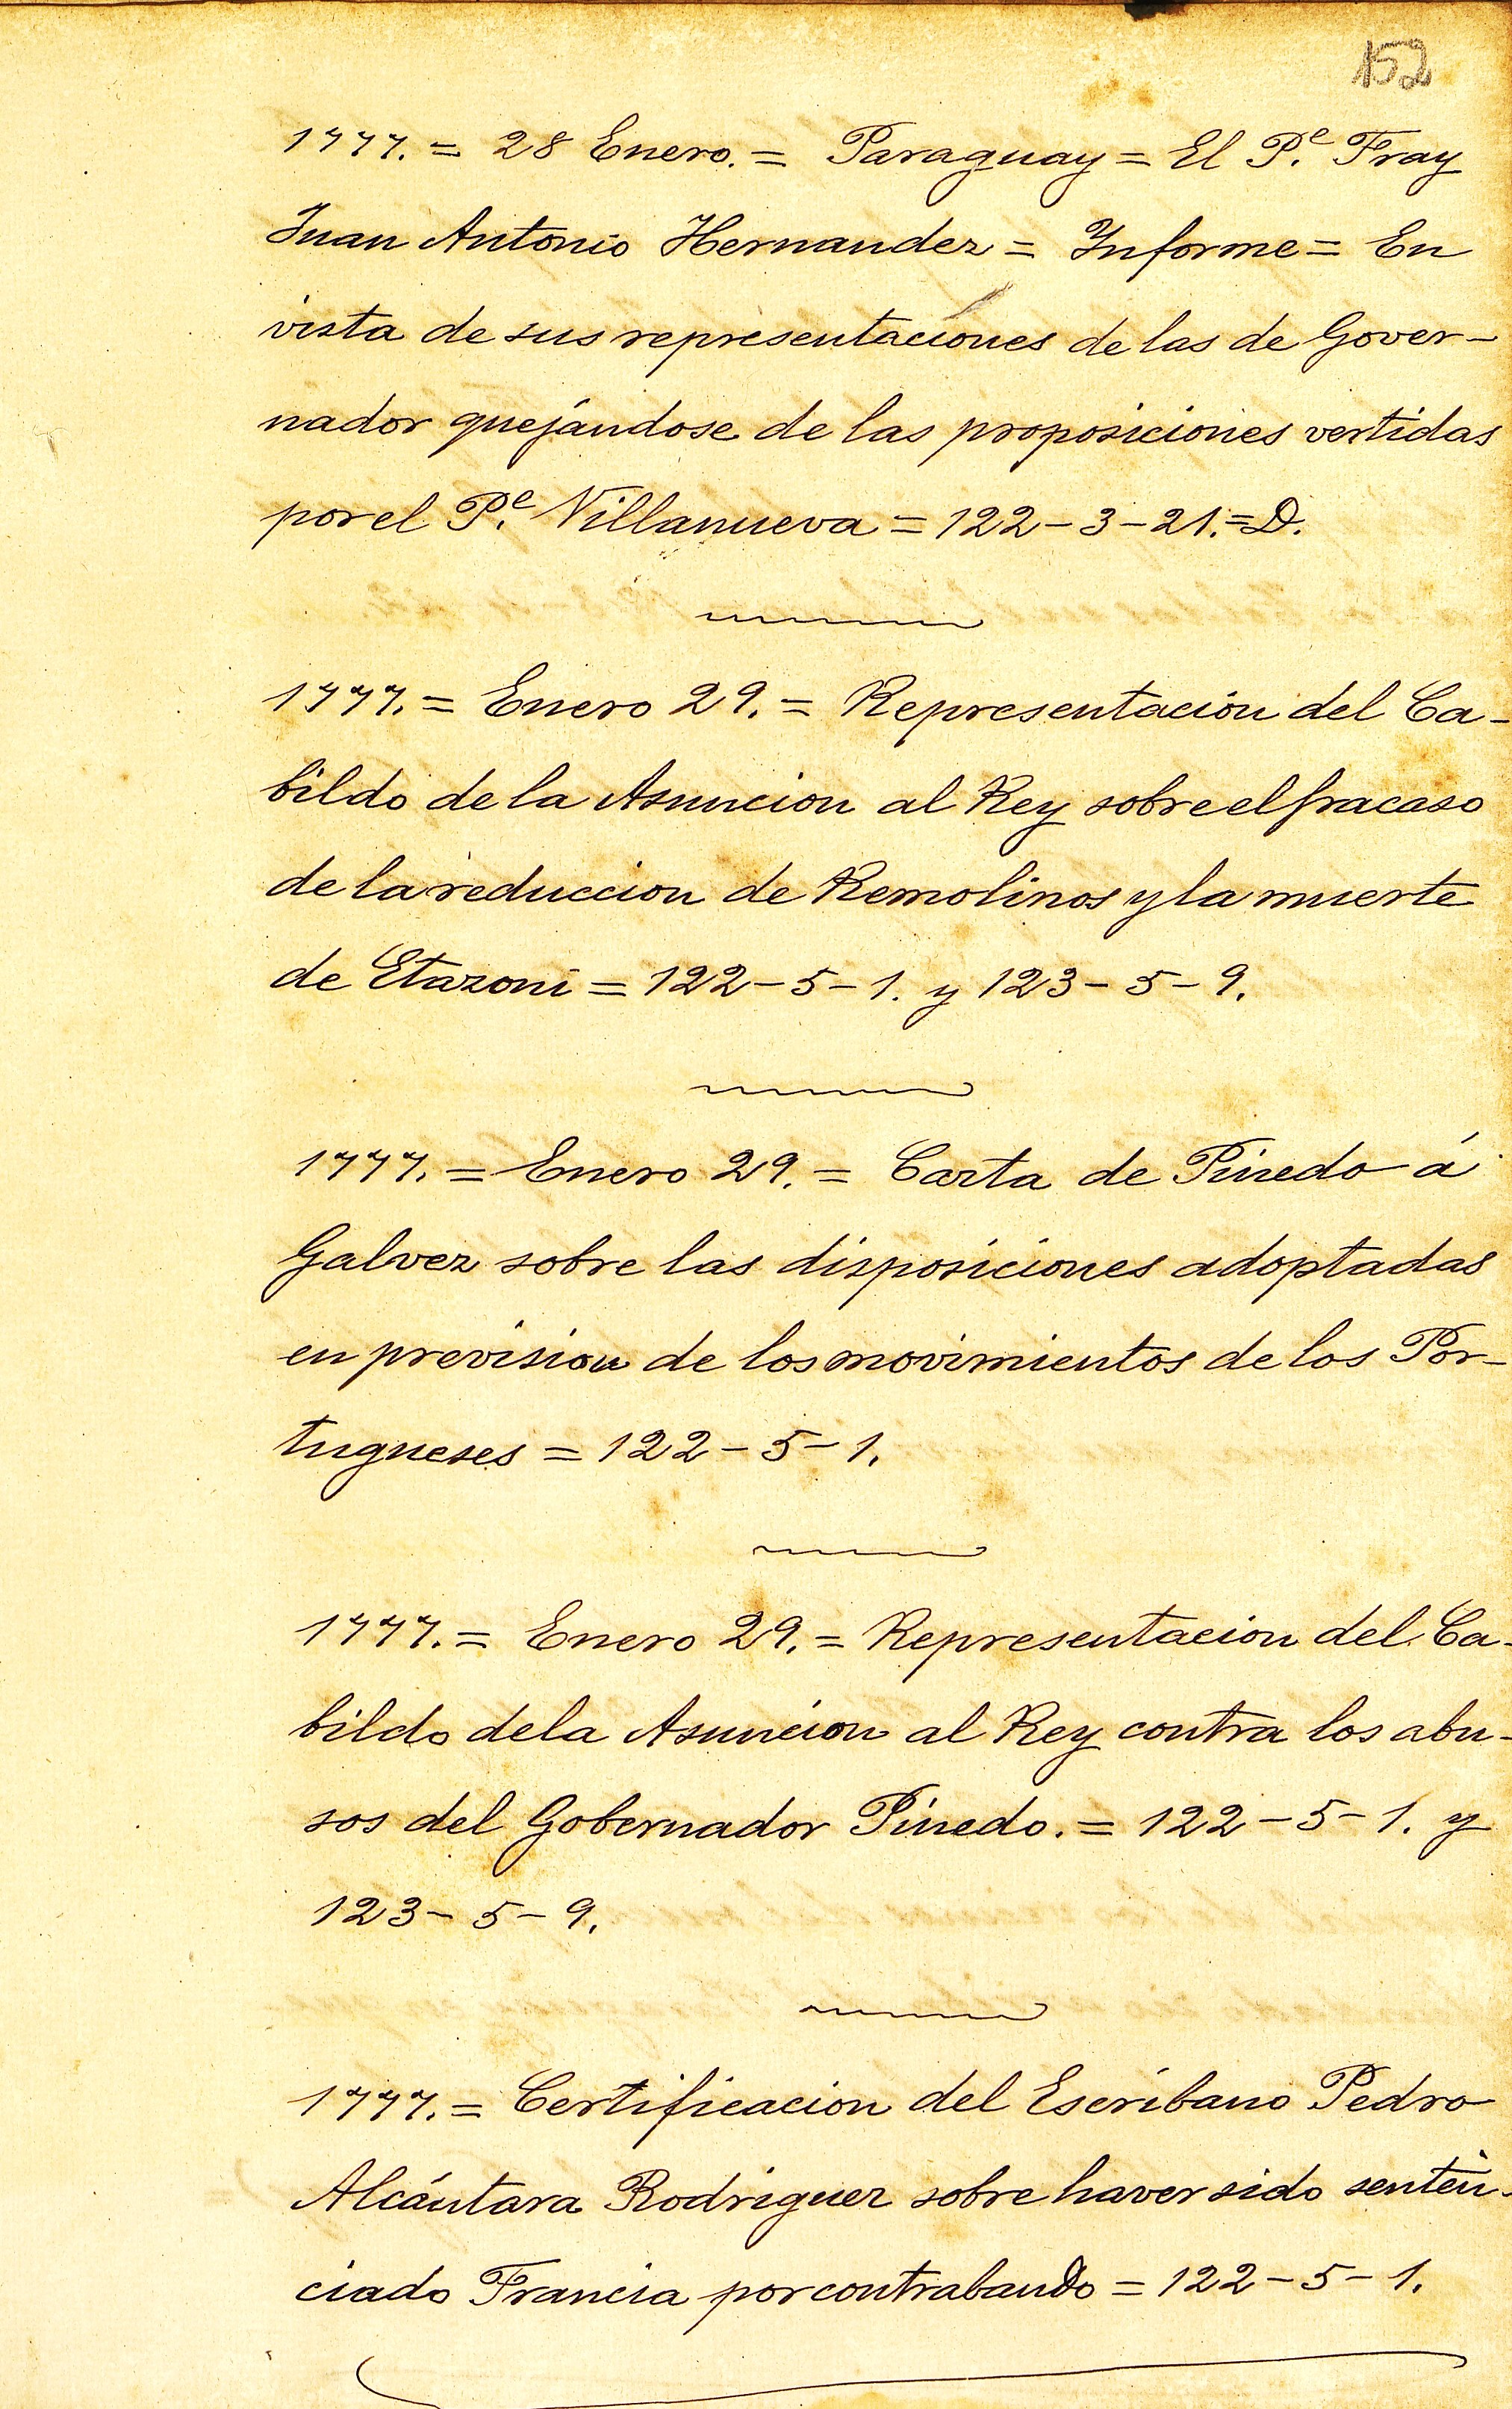 152
1777. = 28 Enero. = Paraguay = El P.e Fray
Juan Antonio Hernandez = Informe = En
vista de sus representaciones de las de Gover-
nador quejándose de las proposiciones vertidas
por el P.e Villanueva = 122-3-21. = D.
1777. = Enero 29. = Representacion del Ca-
bildo de la Asuncion al Rey sobre el fracaso
de la reduccion de Remolinos y la muerte
de Etazoni = 122-5-1. y 123-5-9.
1777. = Enero 29. = Carta de Pinedo á
Galvez sobre las disposiciones adoptadas
en prevision de los movimientos de los Por-
tugueses = 122-5-1.
1777. = Enero 29. = Representacion del Ca-
bildo de la Asuncion al Rey contra los abu-
sos del Gobernador Pinedo. = 122-5-1. y
123-5-9.
1777. = Certificacion del Escribano Pedro
Alcántara Rodriguez sobre haver sido senten-
ciado Francia por contrabando = 122-5-1.